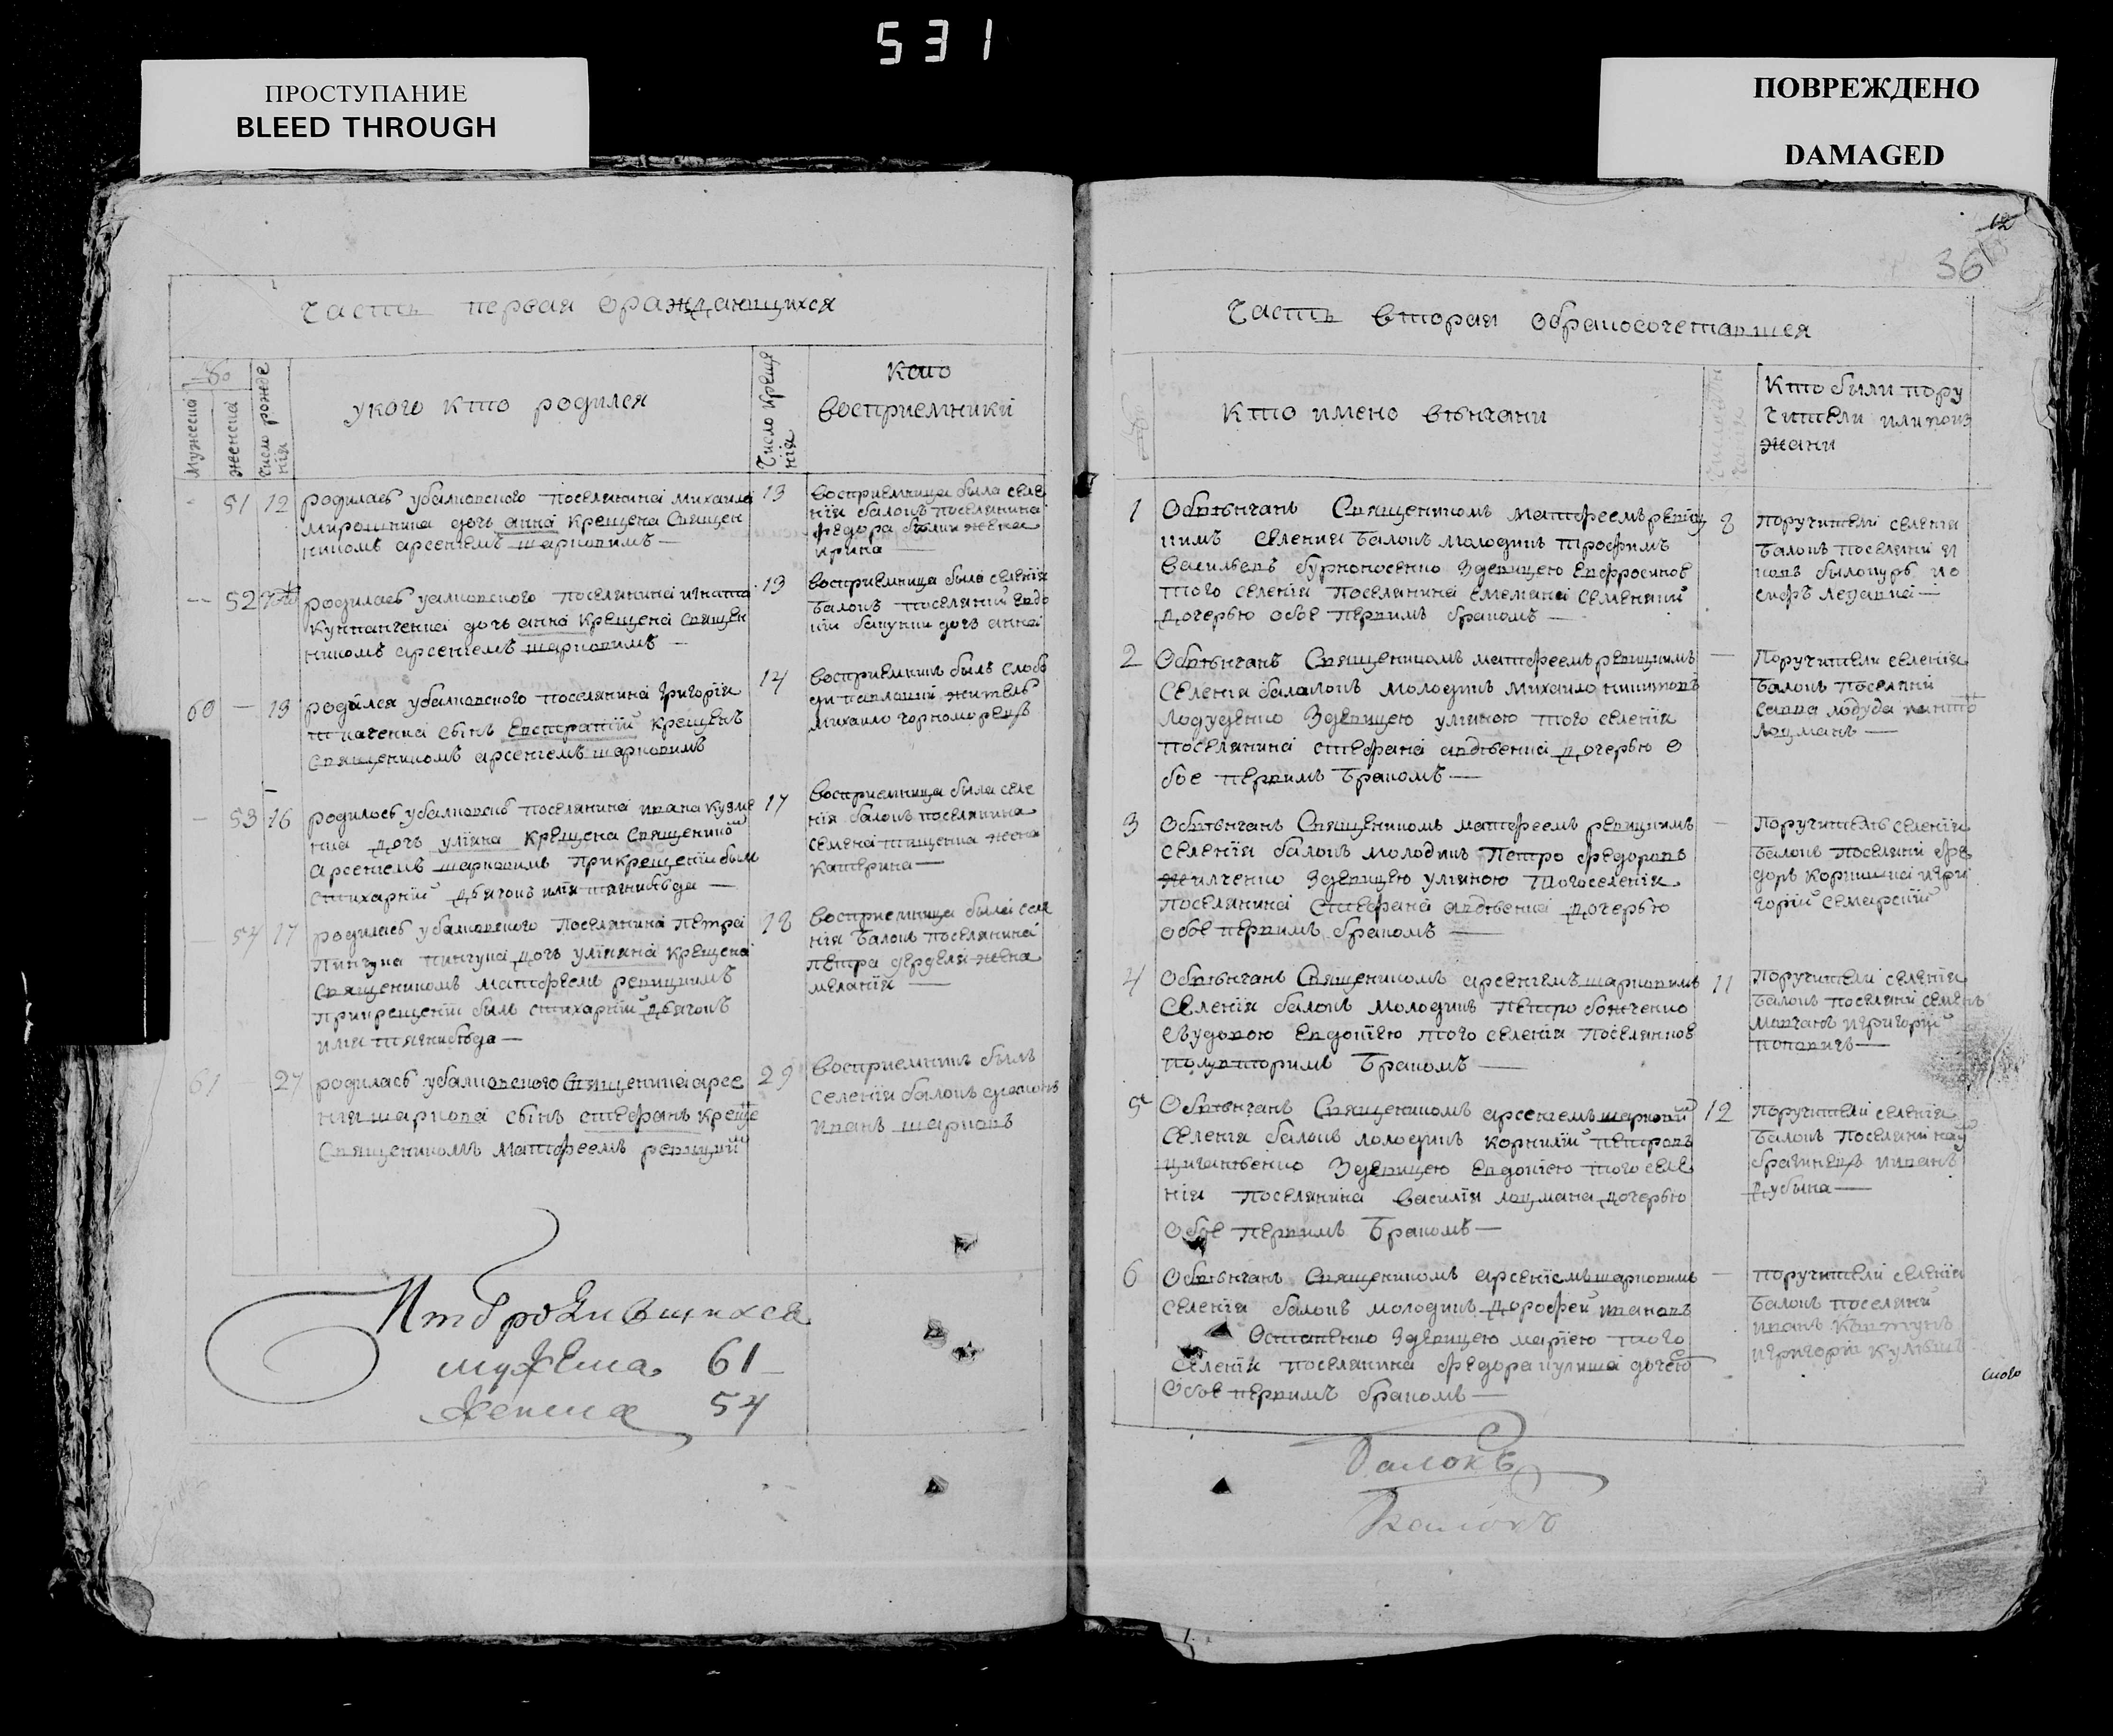 531
ПРОСТУПАНИЕ
BLEED THROUGH
ПОВРЕЖДЕНО
DAMAGED
12
36
Часть первая ораждающихся
Мужеска
женска
число рожде
нія
укого кто родился
Число креще
нія
Кто
восприемники
51 12 родилась убалковского поселянина михаила 13
мирошника дочь анна крещена Священ
ником арсенїемъ шарковимъ —
восприемница была селе
нія балокъ поселянина
федора жена
ирина —
52 родилась убалковского поселянина игната 13
дочь анна крещена Священ
никомъ арсенїемъ шарковимъ —
восприемница была селенія
балокъ поселянки Евдо
кїи дочь анна
60 — 13 родился убалковского поселянина григорїя 14
сынъ Евстратїй крещенъ
Священикомъ арсенїемъ шарковимъ
восприемникъ былъ слобо
ди павловки житель
михаило чорноморецъ
— 53 16 родилась убалковскаго поселянина ивана кузме 17
нка дочь улїяна крещена Священико
арсенїемъ шарковимъ прикрещенїи былъ
стихарнїй дьячокъ илїя тягнибѣда —
восприемница была селе
нїя балокъ поселянина
семена тищенка жена
катерина —
54 17 родилась убалковского поселянина петра 18
пивчуна дочь улїяна крещена
Священикомъ матфеемъ ревуцкимъ
прикрещенїи былъ стихарнїй дьячокъ
илїя тягнибѣда —
восприемница была селе
нїя балокъ поселянина
петра дерделя жена
меланїя —
61 — 27 родилась убалковского Священика арсе 29
нїя шаркова сынъ стефанъ креще
Священикомъ матфеемъ ревуцкий
восприемникъ былъ
селенїя балокъ дяконъ
иванъ шарковъ
Итого родившихся
мужеска 61 —
женска 54
Часть вторая обракосочетавшися
кто имено вѣнчани
Кто были пору
чители или поиз
жани
1 Обвѣнчанъ Священикомъ матфеемъ ревуц 8
кимъ селенія балокъ молодикъ трофимъ
васильевъ бурконосенко здевицею Евфросиное
того селенїя поселянина семенки
дочерью обое первимъ бракомъ —
поручители селенїя
балокъ поселяни я
ковъ белокуръ ио
сифъ
2 Обвѣнчанъ Священикомъ матфеемъ ревуцкимъ —
селенїя балокъ молодикъ михаило никитовъ
лодуденко здевицею улїяною того селенїя
поселянина стефана авдѣенка дочерью о
бое первимъ бракомъ —
Поручители селенїя
балокъ поселяни
савва лодуда
лоцманъ —
3 Обвѣнчанъ Священикомъ матфеемъ ревуцкимъ —
селенїя балокъ молодикъ петро федоровъ
жилченко здевицею улїяною тогоселенїя
поселянина стефана авдѣенка дочерью
обое первимъ бракомъ —
Поручитель селенїя
балокъ поселяни фе
доръ игри
горїй семарскїй
4 Обвѣнчанъ Священикомъ арсенїемъ шарковимъ 11
селенїя балокъ молодикъ петро божченко
свудовою Евдокїею того селенїя поселянкое
полувторимъ бракомъ —
поручители селенїя
балокъ поселяни семенъ
мовчанъ игригорїй
поповичъ —
5 Обвѣнчанъ Священикомъ арсенїемъ шаркови 12
селенїя балокъ молодикъ корнилїй петровъ
здевицею Евдокїею того селе
нїя поселянина василїя лоцмана дочерью
Обое первимъ бракомъ —
поручители селенїя
балокъ поселяни
ииванъ
дубына —
6 Обвѣнчанъ Священикомъ арсенїемъ шарковимъ —
селенїя балокъ молодикъ дорофей ивановъ
Остапенко здевицею марїею того
селенїя поселянина федора кулиша дочею
обое первимъ бракомъ —
поручители селенїя
балокъ поселяни
иванъ
игригорїй кулѣшъ
Балокъ